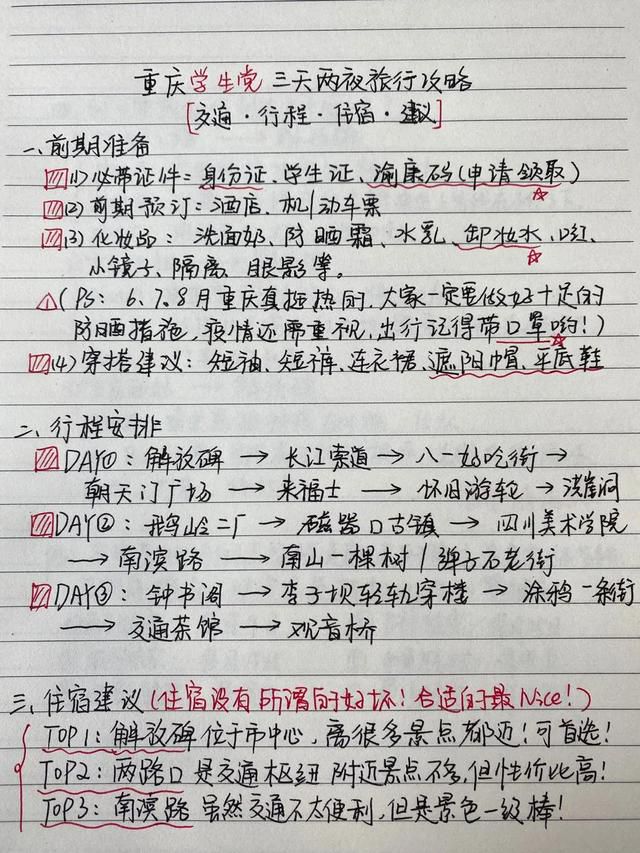 重庆学生党三天两夜旅行攻略
[交通·行程·住宿·建议]
一、前期准备
(1)必带证件：身份证、学生证、渝康码(申请领取)
(2)前期预订：酒店、机/动车票
(3)化妆品：洗面奶、防晒霜、水乳、卸妆水、口红、
小镜子、隔离、眼影等。
(PS：6、7、8月重庆直挺热的，大家一定要做好十足的
防晒措施，疫情还需重视，出行记得带口罩哟！)
(4)穿搭建议：短袖、短裤、连衣裙、遮阳帽、平底鞋
二、行程安排
DAY①：解放碑→长江索道→八一好吃街→
朝天门广场→来福士→怀旧游轮→洪崖洞
DAY②：鹅岭二厂→磁器口古镇→四川美术学院
→南滨路→南山一棵树/弹子石老街
DAY③：钟书阁→李子坝轻轨穿楼→涂鸦一条街
→交通茶馆→观音桥
三、住宿建议(住宿没有所谓的好坏！合适的最Nice！)
TOP1：解放碑位于市中心，离很多景点都近！可首选！
TOP2：两路口是交通枢纽 附近景点不多，但性价比高！
TOP3：南滨路虽然交通不太便利，但是景色一级棒！